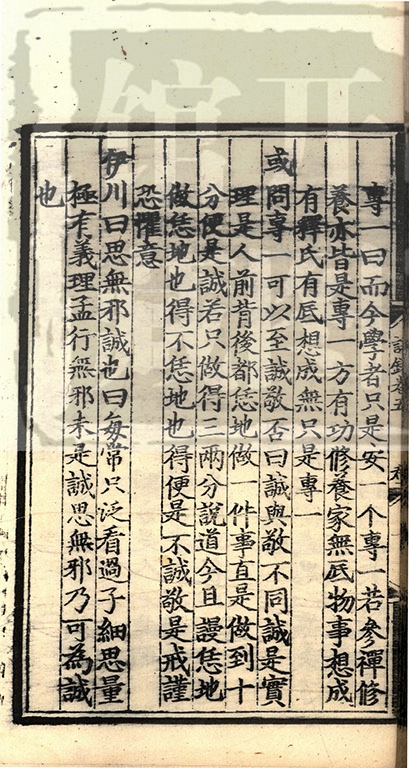 語錄卷五
專一曰而今學者只是安一个專一若參禪修
養亦皆是專一方有功修養家無底物事想成
有釋氏有底想成無只是專一
或問專一可以至誠敬否曰誠與敬不同誠是實
理是人前背後都恁地做一件事直是做到十
分便是誠若只做得三兩分說道今且謾恁地
做恁地也得不恁地也得便是不誠敬是戒謹
恐懼意
伊川曰思無邪誠也曰每常只泛看過子細思量
極有義理盖行無邪未是誠思無邪乃可為誠
也